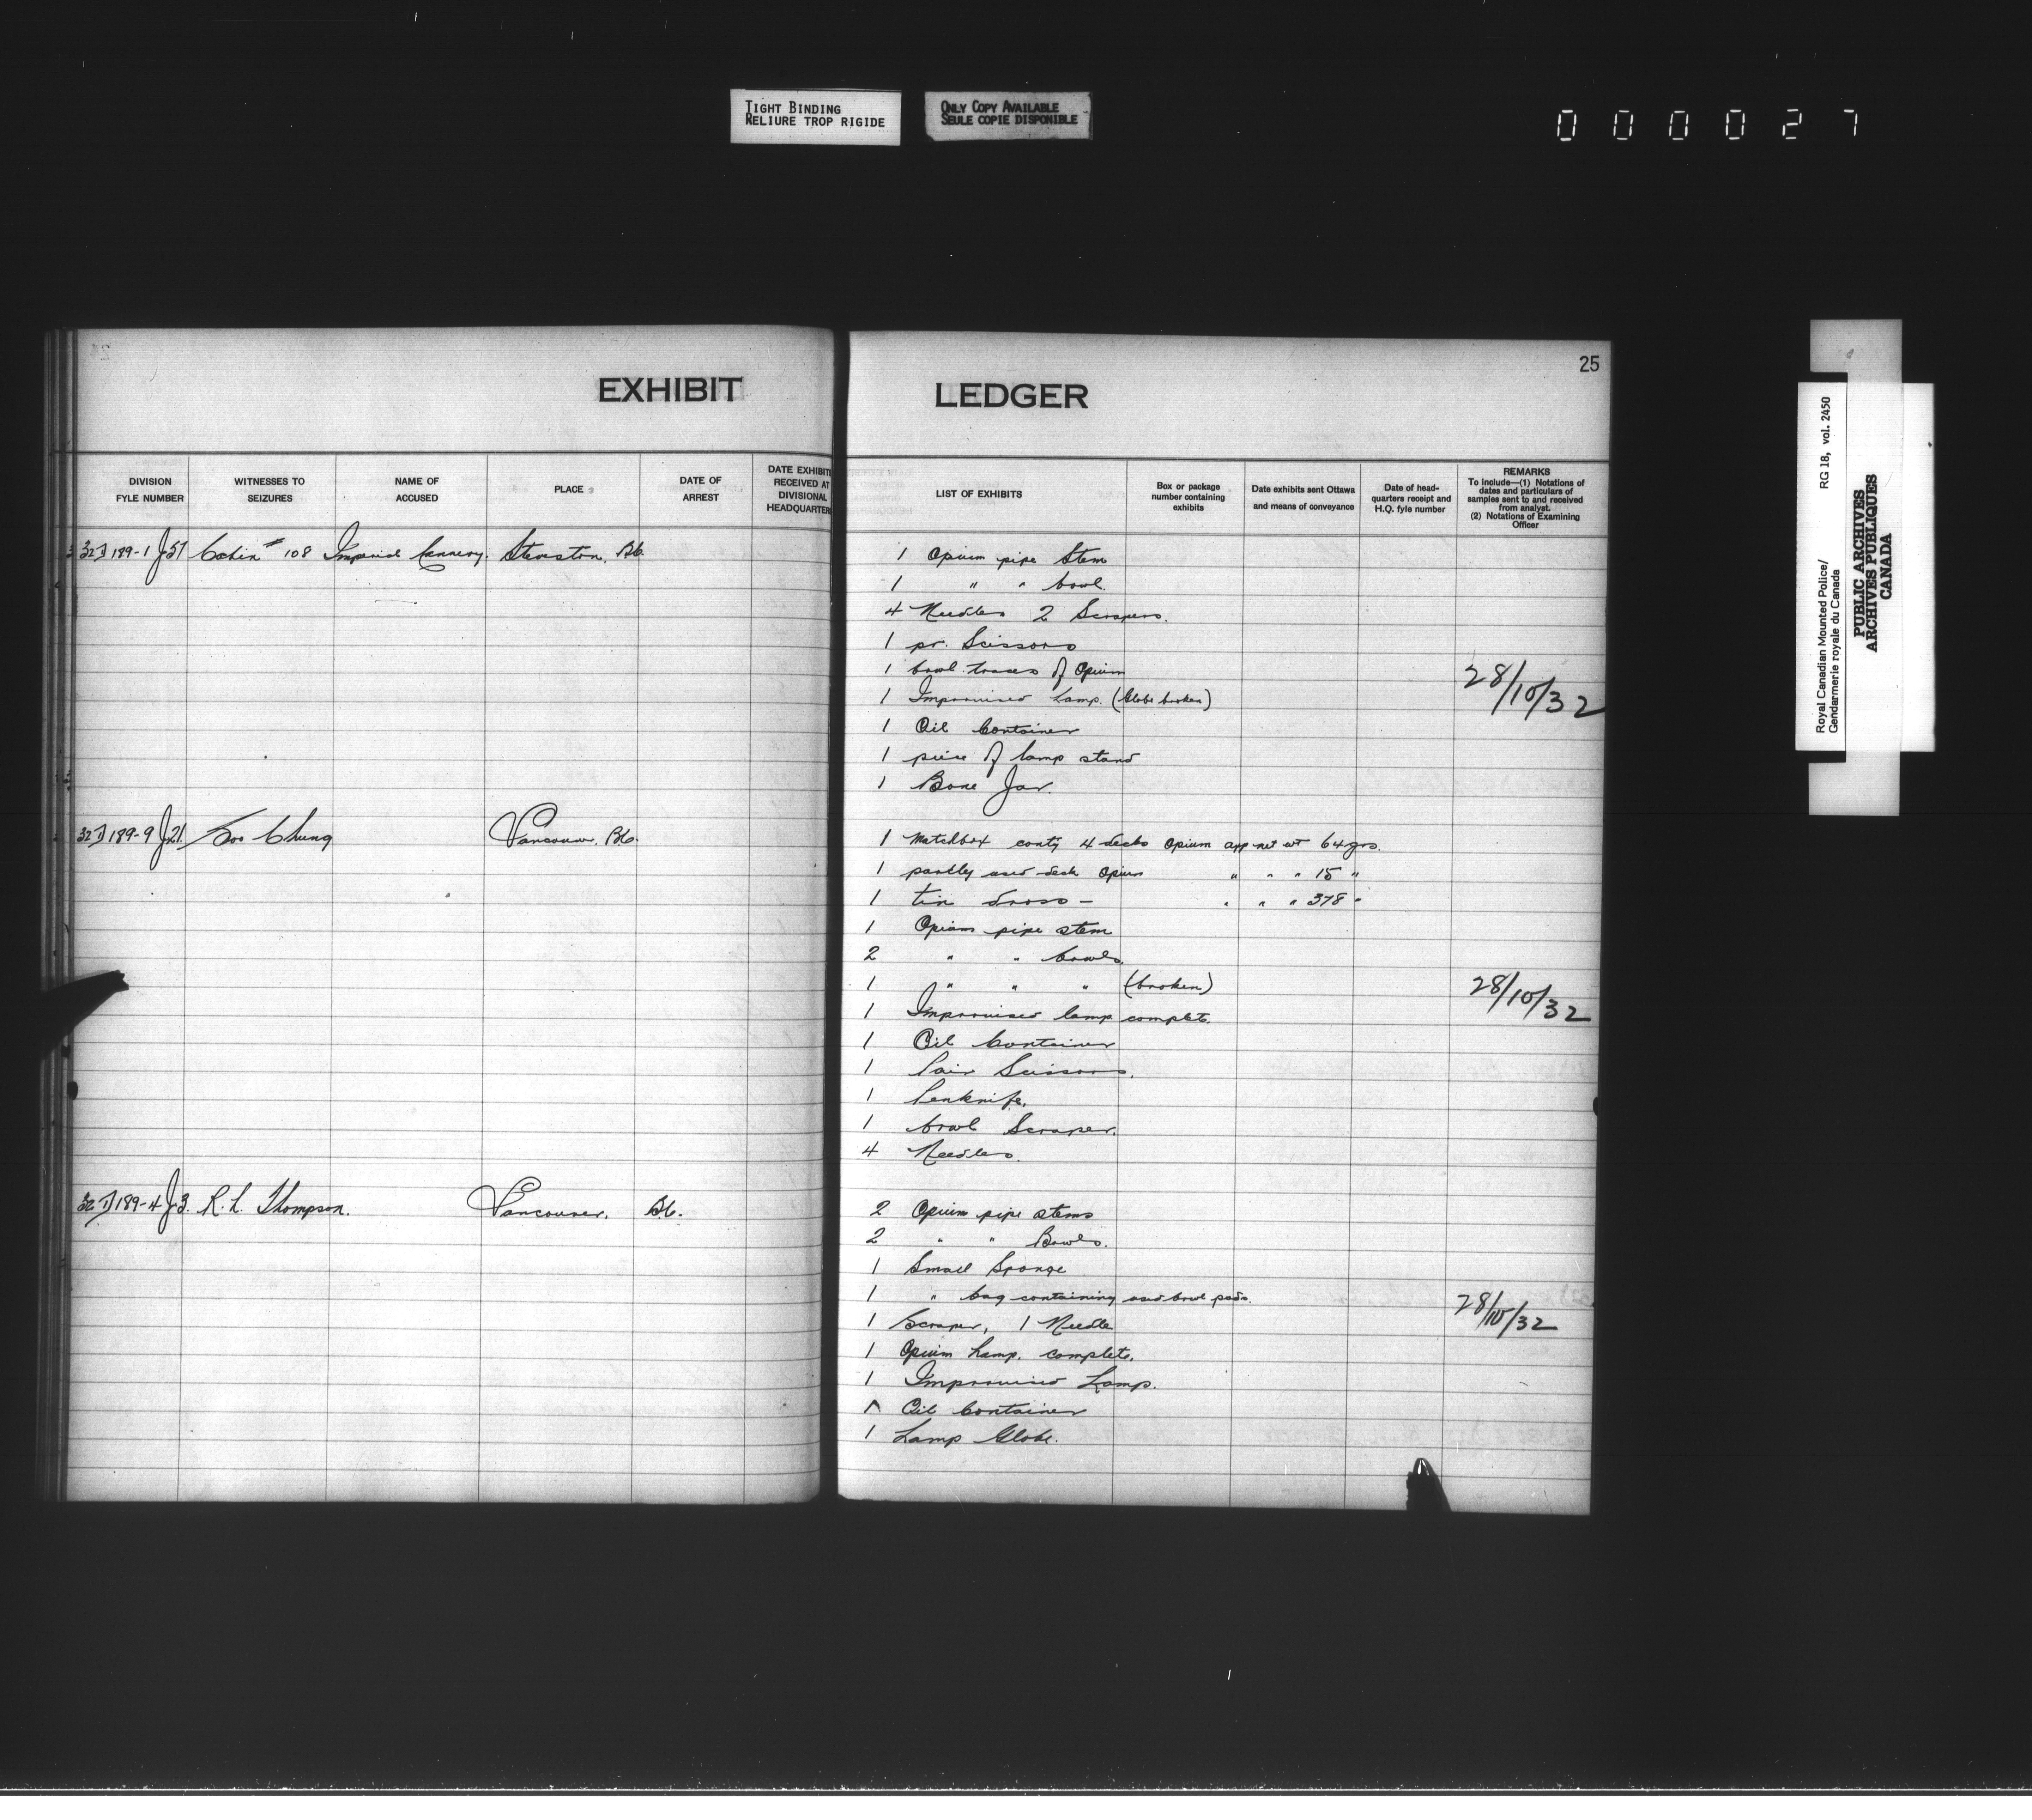 TIGHT BINDING
RELIURE TROP RIGIDE
ONLY COPY AVAILABLE
SEULE COPIE DISPONIBLE
000027
EXHIBIT
DIVISION FYLE NUMBER
WITNESSES TO SEIZURES
NAME OF ACCUSED
PLACE
DATE OF ARREST
DATE EXHIBIT RECEIVED AT DIVISIONAL HEADQUARTERS
32D 189-1 J 57 Cabin # 108 Imperial Cannery. Steveston. BC
32D 189-9 J 21 Soo Chung Vancouver. BC.
32D 189-4 J 3. R. L. Thompson. Vancouver. BC.
25
LEDGER
LIST OF EXHIBITS
Box or package number containing exhibits
Date exhibits sent Ottawa and means of conveyance
Date of head-quarters receipt and H.Q. fyle number
REMARKS
To include—(1) Notations of dates and particulars of samples sent to and received from analyst.
(2) Notations of Examining Officer
1 Opium pipe Stem
1 " " bowl.
4 Needles 2 Scrapers.
1 pr. Scissors
1 bowl traces of Opium
28/10/32
1 Improvised Lamp. (Globe broken)
1 Oil Container
1 piece of lamp stand
1 Bone Jar.
1 Matchbox contg 4 decks Opium app net wt 64 grs.
1 partly used deck Opium " " " 15 "
1 tin dross - " " " 378 "
1 Opium pipe stem
2 " " bowls.
1 " " " (broken)
28/10/32
1 Improvised lamp complete.
1 Oil Container
1 Pair Scissors.
1 Penknife.
1 bowl Scraper.
4 Needles.
2 Opium pipe stems
2 " " Bowls.
1 Small Sponge
1 " bag containing used bowl pads.
28/10/32
1 Scraper, 1 Needle
1 Opium Lamp. complete.
1 Improvised Lamp.
1 Oil Container
1 Lamp Globe.
Royal Canadian Mounted Police/
Gendarmerie royale du Canada
RG 18, vol. 2450
PUBLIC ARCHIVES
ARCHIVES PUBLIQUES
CANADA